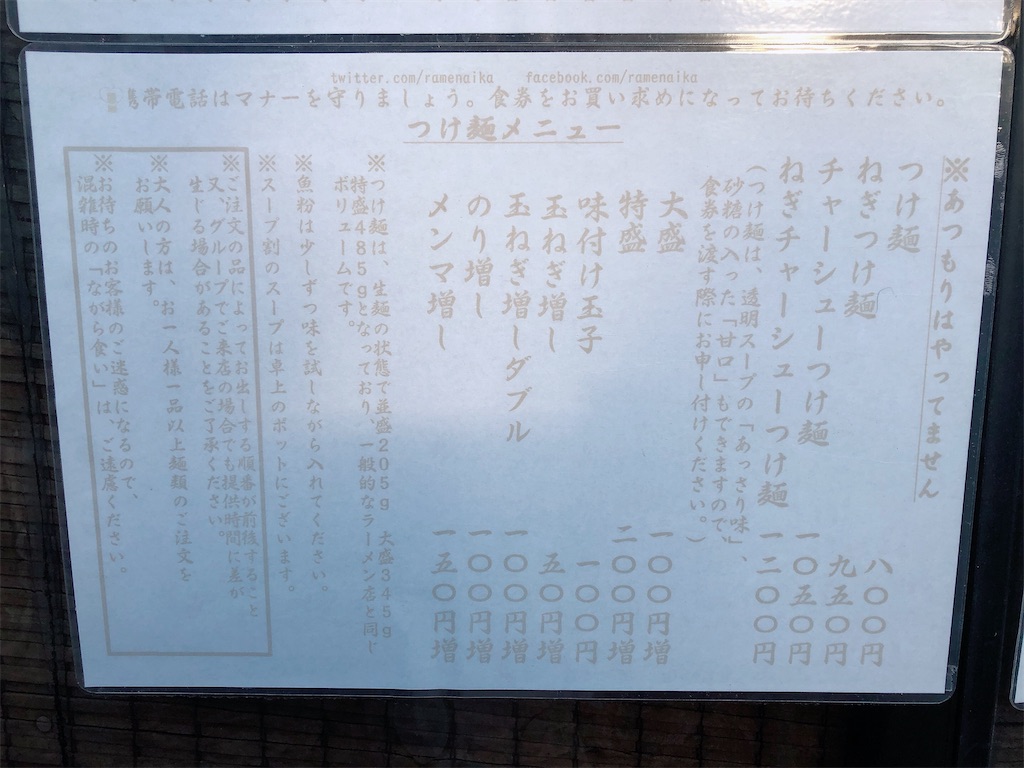 twitter.com/ramenaika facebook.com/ramenaika
携帯電話はマナーを守りましょう。食券をお買い求めになってお待ちください。
つけ麺メニュー
※あつもりはやってません
つけ麺 八〇〇円
ねぎつけ麺 九五〇円
チャーシューつけ麺 一〇五〇円
ねぎチャーシューつけ麺 一二〇〇円
(つけ麺は、透明スープの「あっさり味」、
砂糖の入った「甘口」もできますので、
食券を渡す際にお申し付けください。)
大盛 一〇〇円増
特盛 二〇〇円増
味付け玉子 一〇〇円
玉ねぎ増し 五〇円増
玉ねぎ増しダブル 一〇〇円増
のり増し 一〇〇円増
メンマ増し 一五〇円増
※つけ麺は、生麺の状態で並盛205g 大盛345g
特盛485gとなっており、一般的なラーメン店と同じ
ボリュームです。
※魚粉は少しずつ味を試しながら入れてください。
※スープ割のスープは卓上のポットにございます。
※ご注文の品によってお出しする順番が前後すること
又、グループでご来店の場合でも提供時間に差が
生じる場合があることをご了承ください。
※大人の方は、お一人様一品以上麺類のご注文を
お願いします。
※お待ちのお客様のご迷惑になるので、
混雑時の「ながら食い」は、ご遠慮ください。